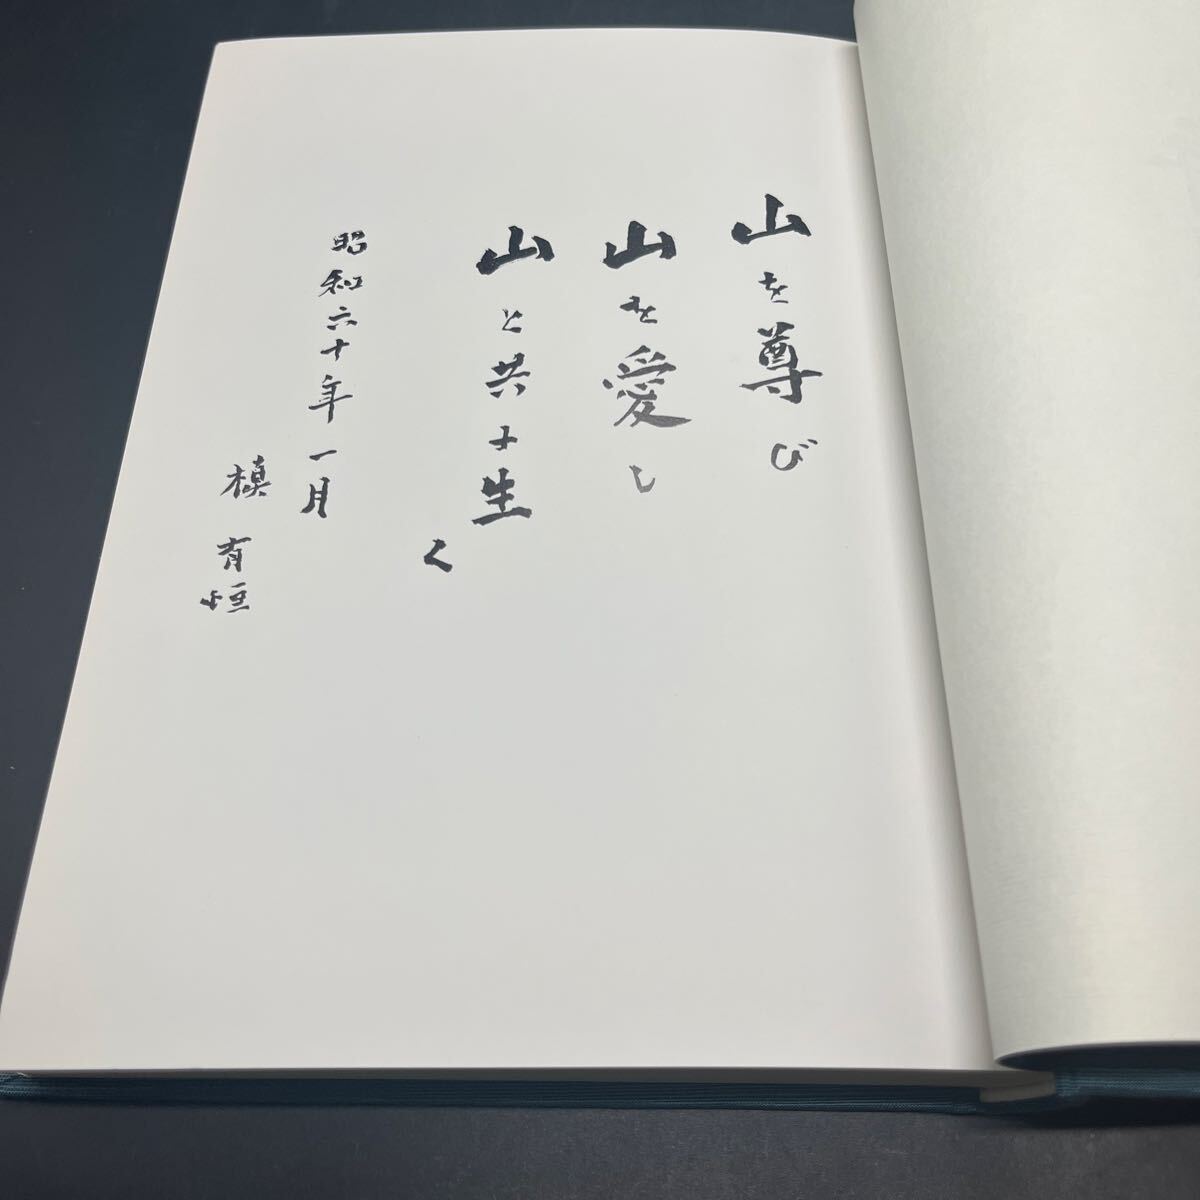 山を尊び
山を愛し
山と共に生く
昭和六十年一月
槇有恒